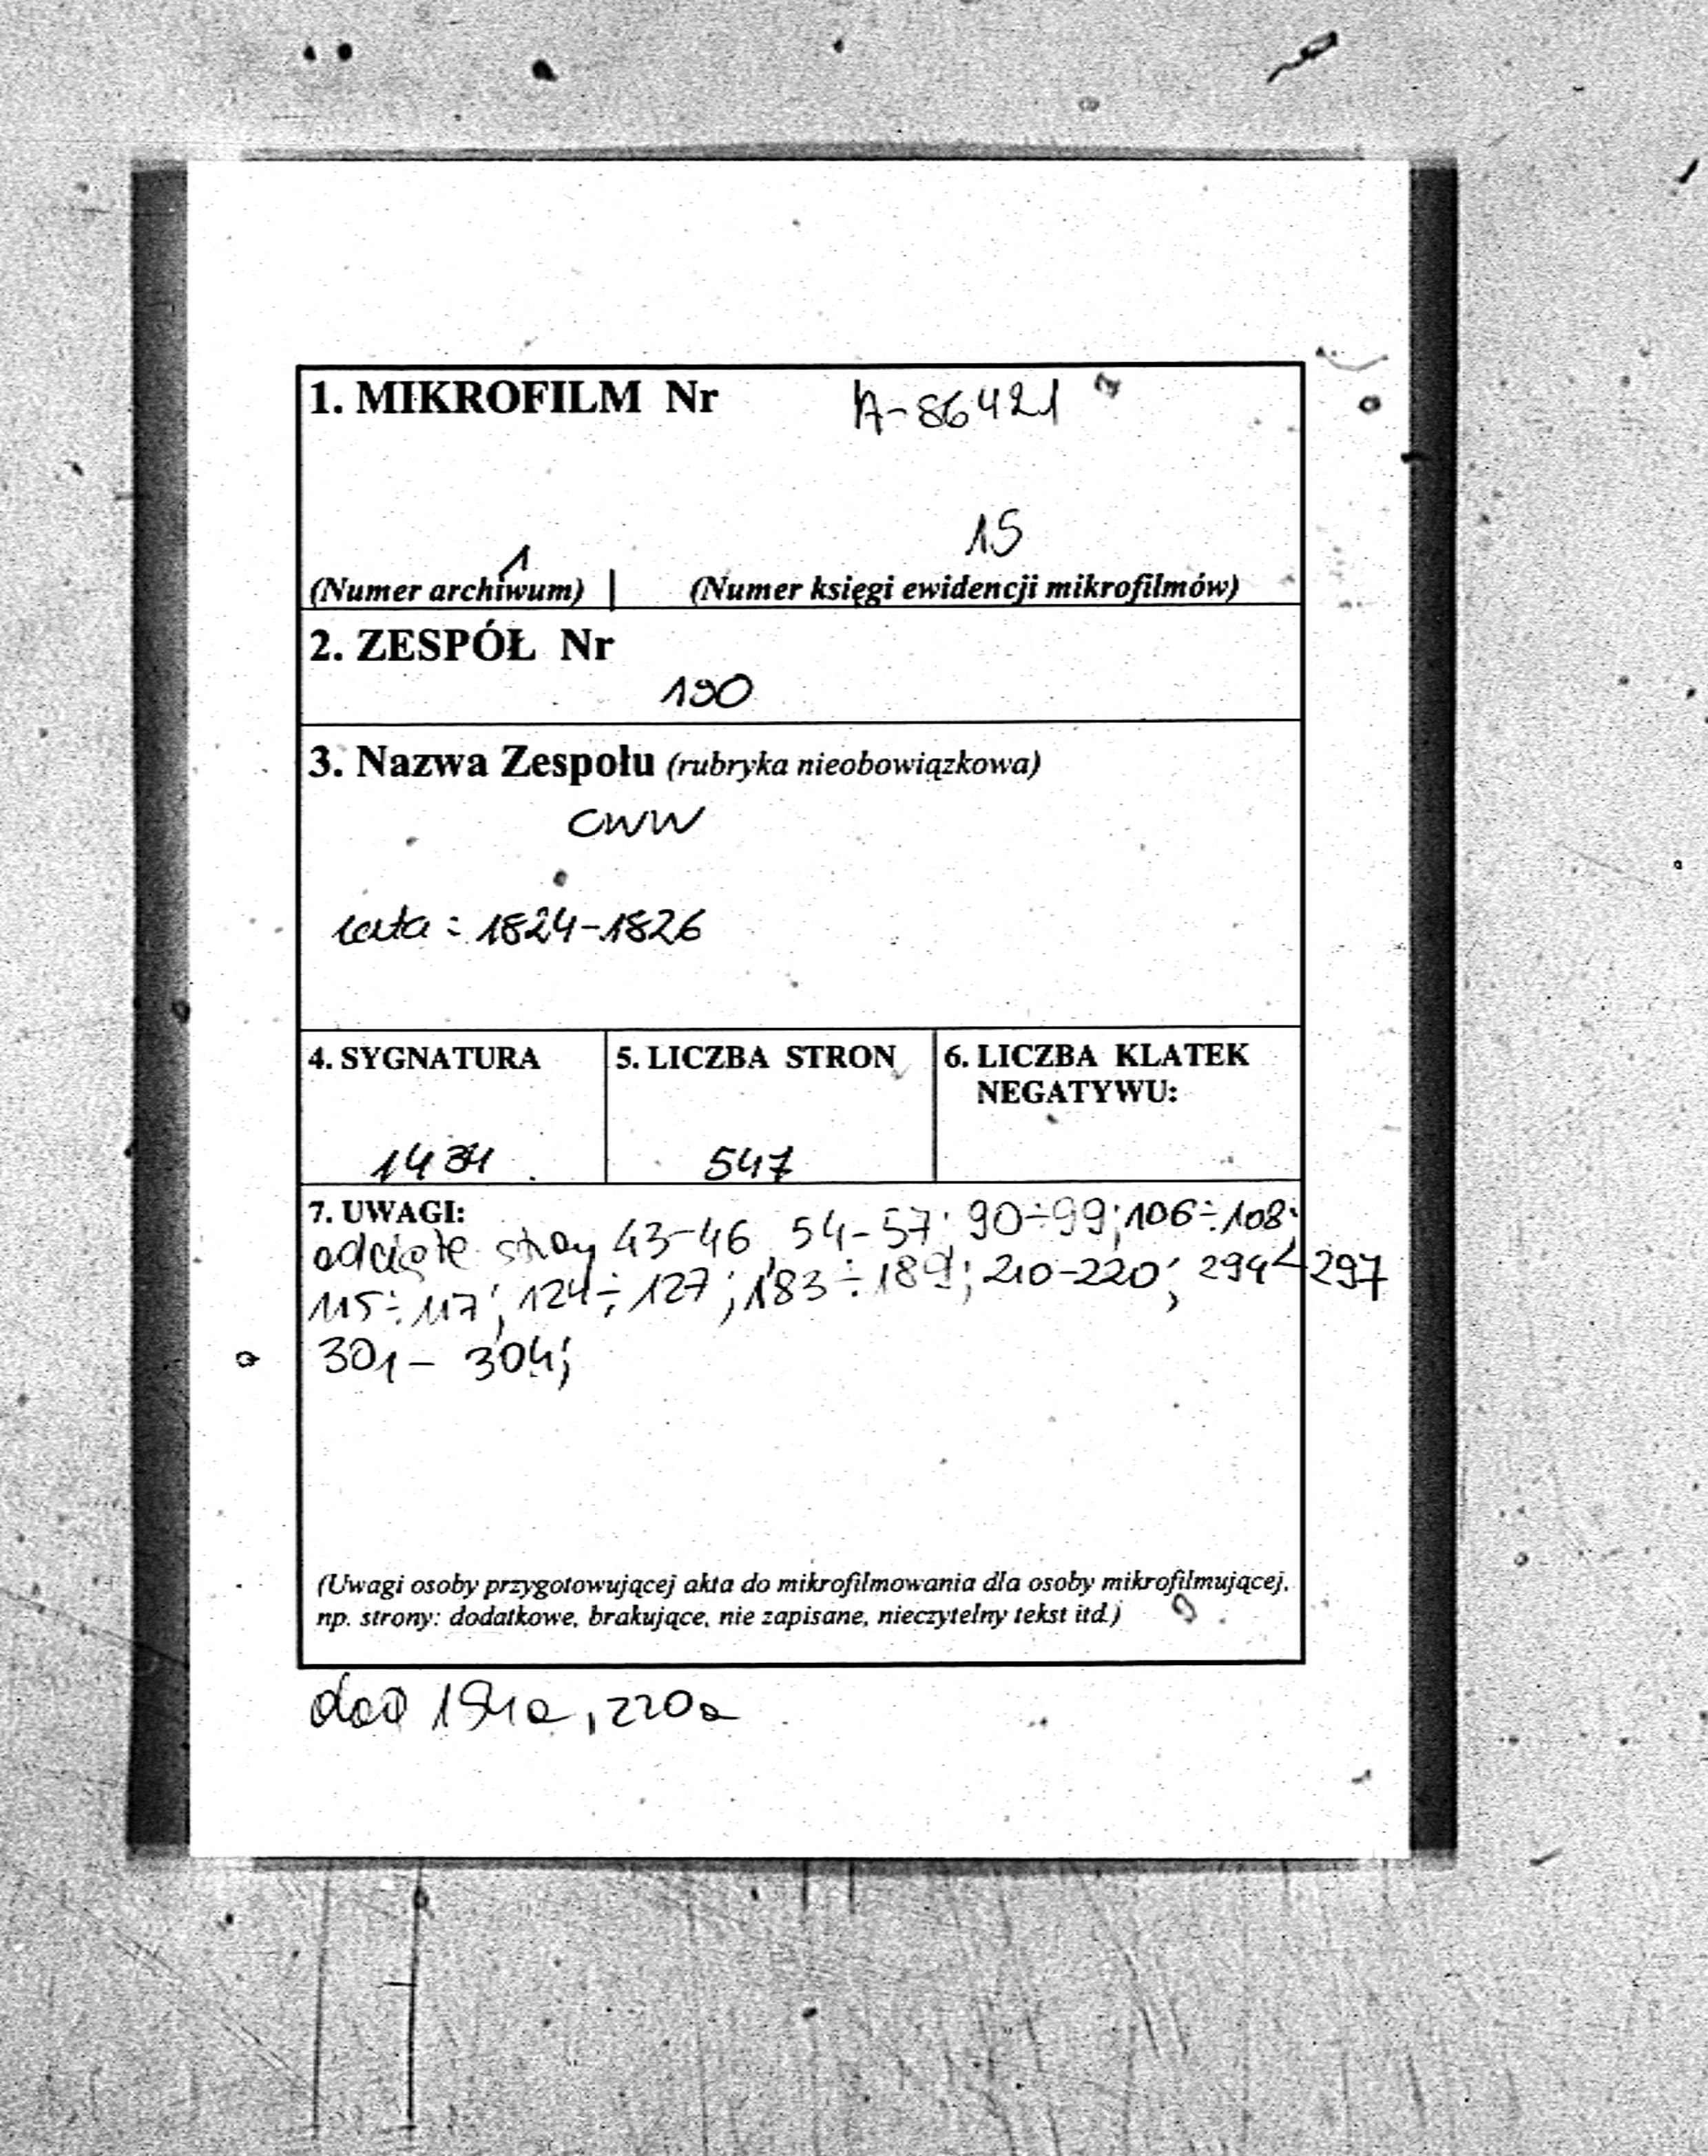 1. MIKROFILM Nr A-86421
1 15
(Numer archiwum) | (Numer księgi ewidencji mikrofilmów)
2. ZESPÓŁ Nr
190
3. Nazwa Zespołu (rubryka nieobowiązkowa)
CWW
lata: 1824-1826
4. SYGNATURA 5. LICZBA STRON 6. LICZBA KLATEK
NEGATYWU:
1434 547
7. UWAGI:
odcięte strony 43-46, 54-57; 90÷99; 106÷108;
115÷117; 124÷127; 183÷189; 210-220; 294-297
301-304;
(Uwagi osoby przygotowującej akta do mikrofilmowania dla osoby mikrofilmującej,
np. strony: dodatkowe, brakujące, nie zapisane, nieczytelny tekst itd.)
dod , 220a